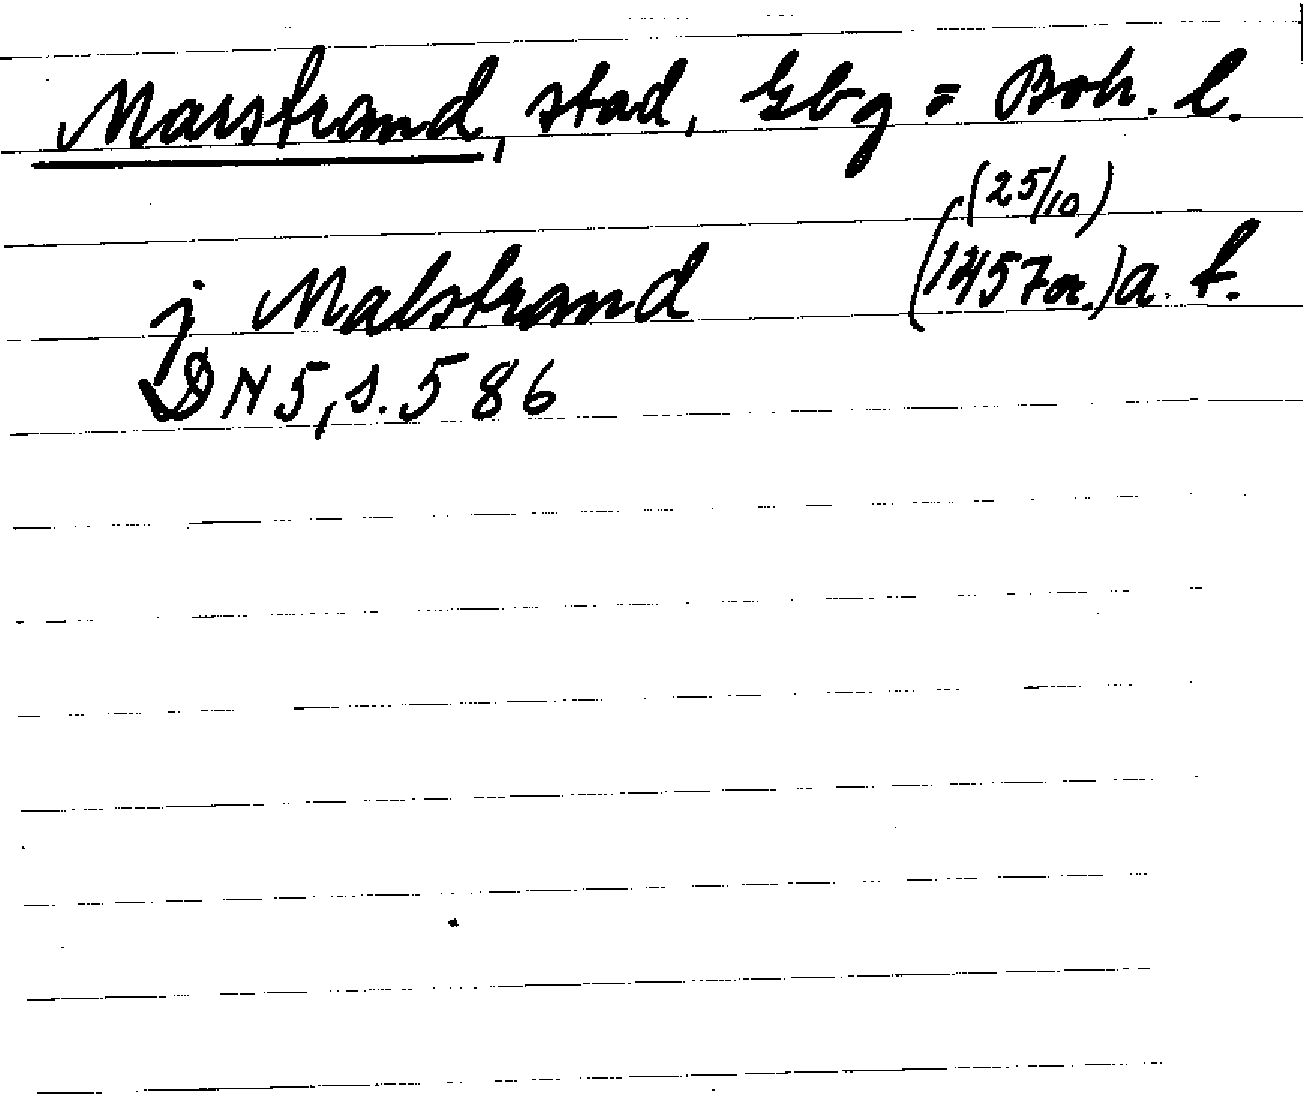 Marstrand, stad, Gbg = Boh. l.
(25/10)
j Malstrand (1457 or.) a. f.
DN 5, s. 586